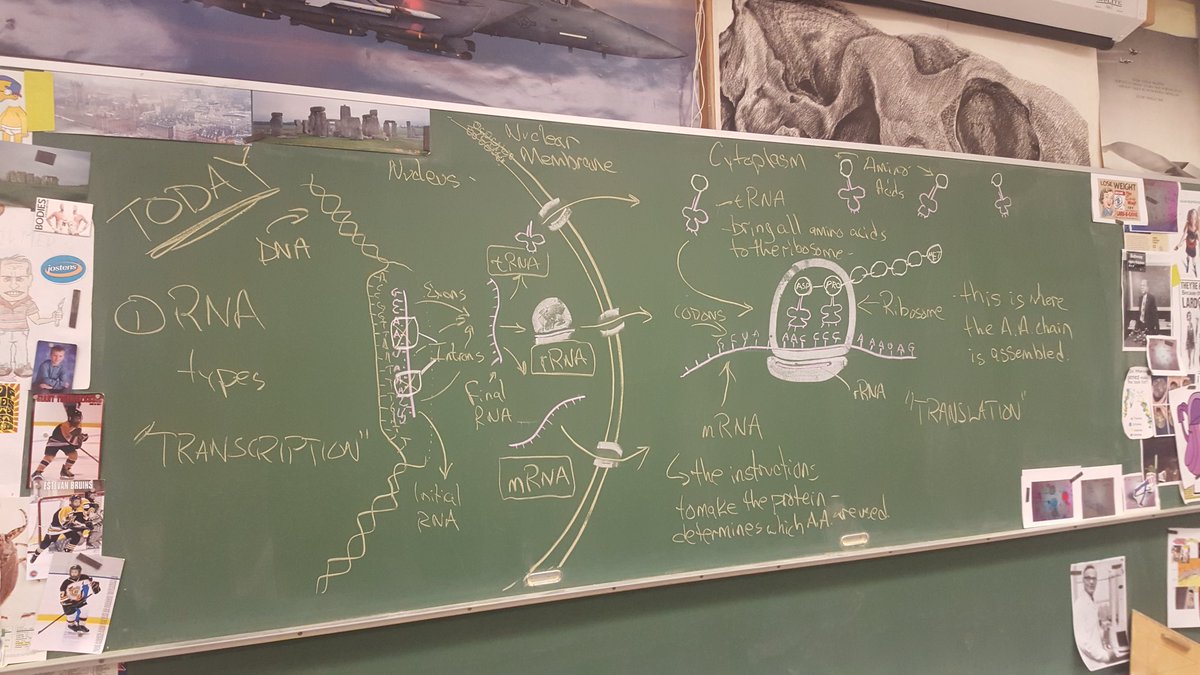 TODAY
① RNA
types
"TRANSCRIPTION"
DNA
Nucleus
Exons
Introns
Initial
RNA
Final
RNA
tRNA
rRNA
mRNA
Nuclear
Membrane
Cytoplasm
Amino
Acids
tRNA
bring all amino acids
to the ribosome
MET
ASP
PRO
Ribosome
this is where
the A.A. chain
is assembled.
codons
rRNA
mRNA
the instructions
to make the protein -
determines which A.A. are used.
"TRANSLATION"
BODIES
jostens
ESTEVAN BRUINS
LOSE WEIGHT